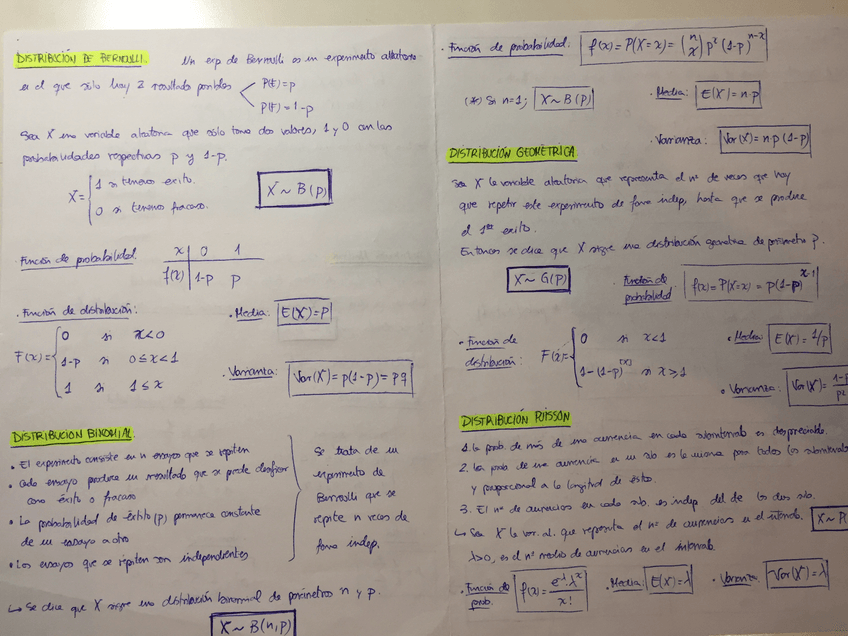 DISTRIBUCIÓN DE BERNOULLI. Un exp de Bernoulli es un experimento aleatorio
en el que sólo hay 2 resultado posibles P(E)=p
P(F)=1-p
Sea X una variable aleatoria que sólo toma dos valores, 1 y 0 con las
probabilidades respectivas p y 1-p.
X = { 1 si tenemos exito.
0 si tenemos fracaso.
X ~ B(p)
· Función de probabilidad
x | 0 1
f(x) | 1-p p
· Función de distribución:
F(x) = { 0 si x<0
1-p si 0≤x<1
1 si 1≤x
· Media: E(X)=p
· Varianza: Var(X)=p(1-p)=pq
DISTRIBUCION BINOMIAL.
• El experimento consiste en n ensayos que se repiten
• Cada ensayo produce un resultado que se puede clasificar
como éxito o fracaso
• La probabilidad de éxito (p) permanece constante
de un ensayo a otro
• Los ensayos que se repiten son independientes
Se trata de un
experimento de
Bernoulli que se
repite n veces de
forma indep.
↳ Se dice que X sigue una distribución binomial de parámetros n y p.
X ~ B(n,p)
· Función de probabilidad: f(x)=P(X=x)=(n x) p^x (1-p)^n-x
(*) Si n=1; X~B(p)
· Media: E(X)=n·p
· Varianza: Var(X)=n·p(1-p)
DISTRIBUCIÓN GEOMÉTRICA
Sea X la variable aleatoria que representa el nº de veces que hay
que repetir este experimento de forma indep, hasta que se produce
el 1er exito.
Entonces se dice que X sigue una distribución geometrica de parámetro p.
X ~ G(p)
· Función de probabilidad f(x)=P(X=x)=p(1-p)^x-1
• Función de distribución: F(x)= { 0 si x<1
1-(1-p)^[x] si x≥1
• Media: E(X)=1/p
• Varianza: Var(X)=1-p/p²
DISTRIBUCIÓN POISSON
1. La prob. de más de una ocurrencia en cada subintervalo es despreciable.
2. La prob de una ocurrencia en un sub es la misma para todos los subintervalo
y proporcional a la longitud de éstos.
3. El nº de ocurrencias en cada sub. es indep del de los dos sub.
↳ Sea X la var. al. que representa el nº de ocurrencias en el intervalo.
λ>0, es el nº medio de ocurrencias en el intervalo.
· Función de prob. f(x)=e^-λ λ^x / x!
· Media: E(X)=λ
· Varianza: Var(X)=λ